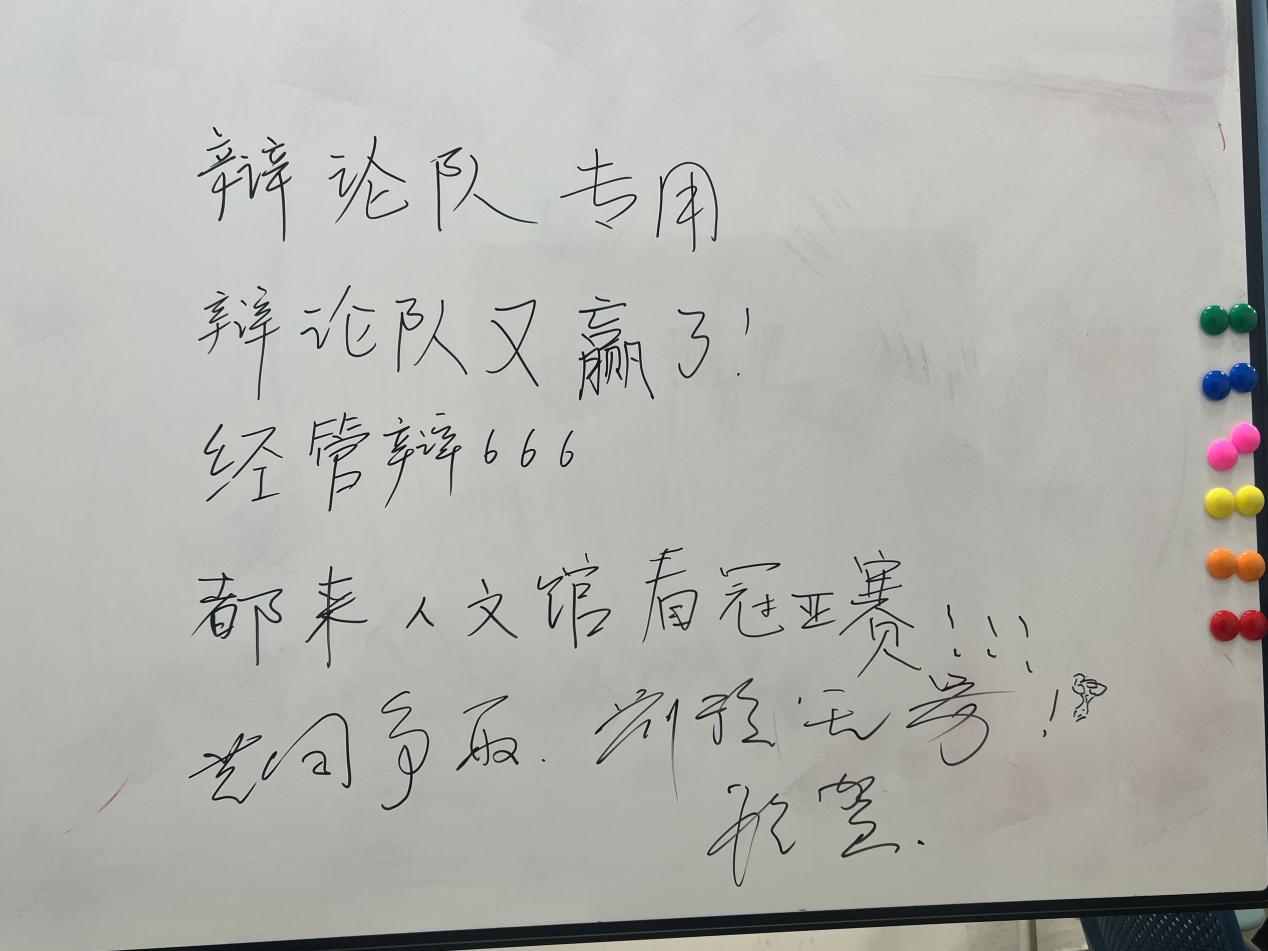 辩论队专用
辩论队又赢了!
经管辩666
都来人文馆看冠亚赛!!!
争取